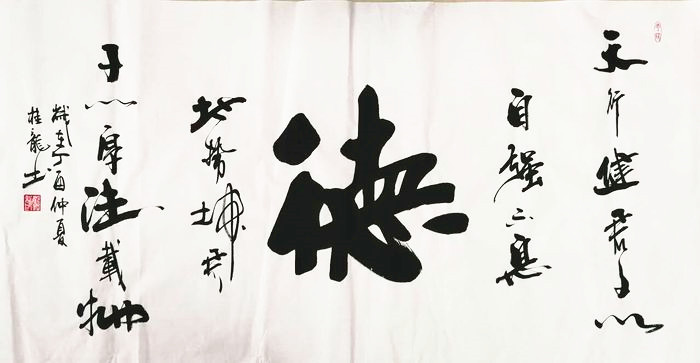 天行健君子以
自强不息
德
地勢坤君
子以厚德載物
歲在丁酉仲夏
桂龍